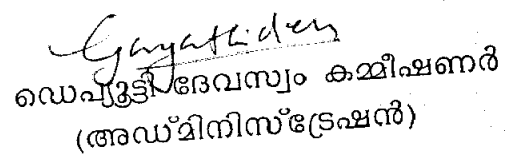 Gayathidevi
ഡെപ്യൂട്ടി ദേവസ്വം കമ്മീഷണർ
(അഡ്മിനിസ്ട്രേഷൻ)